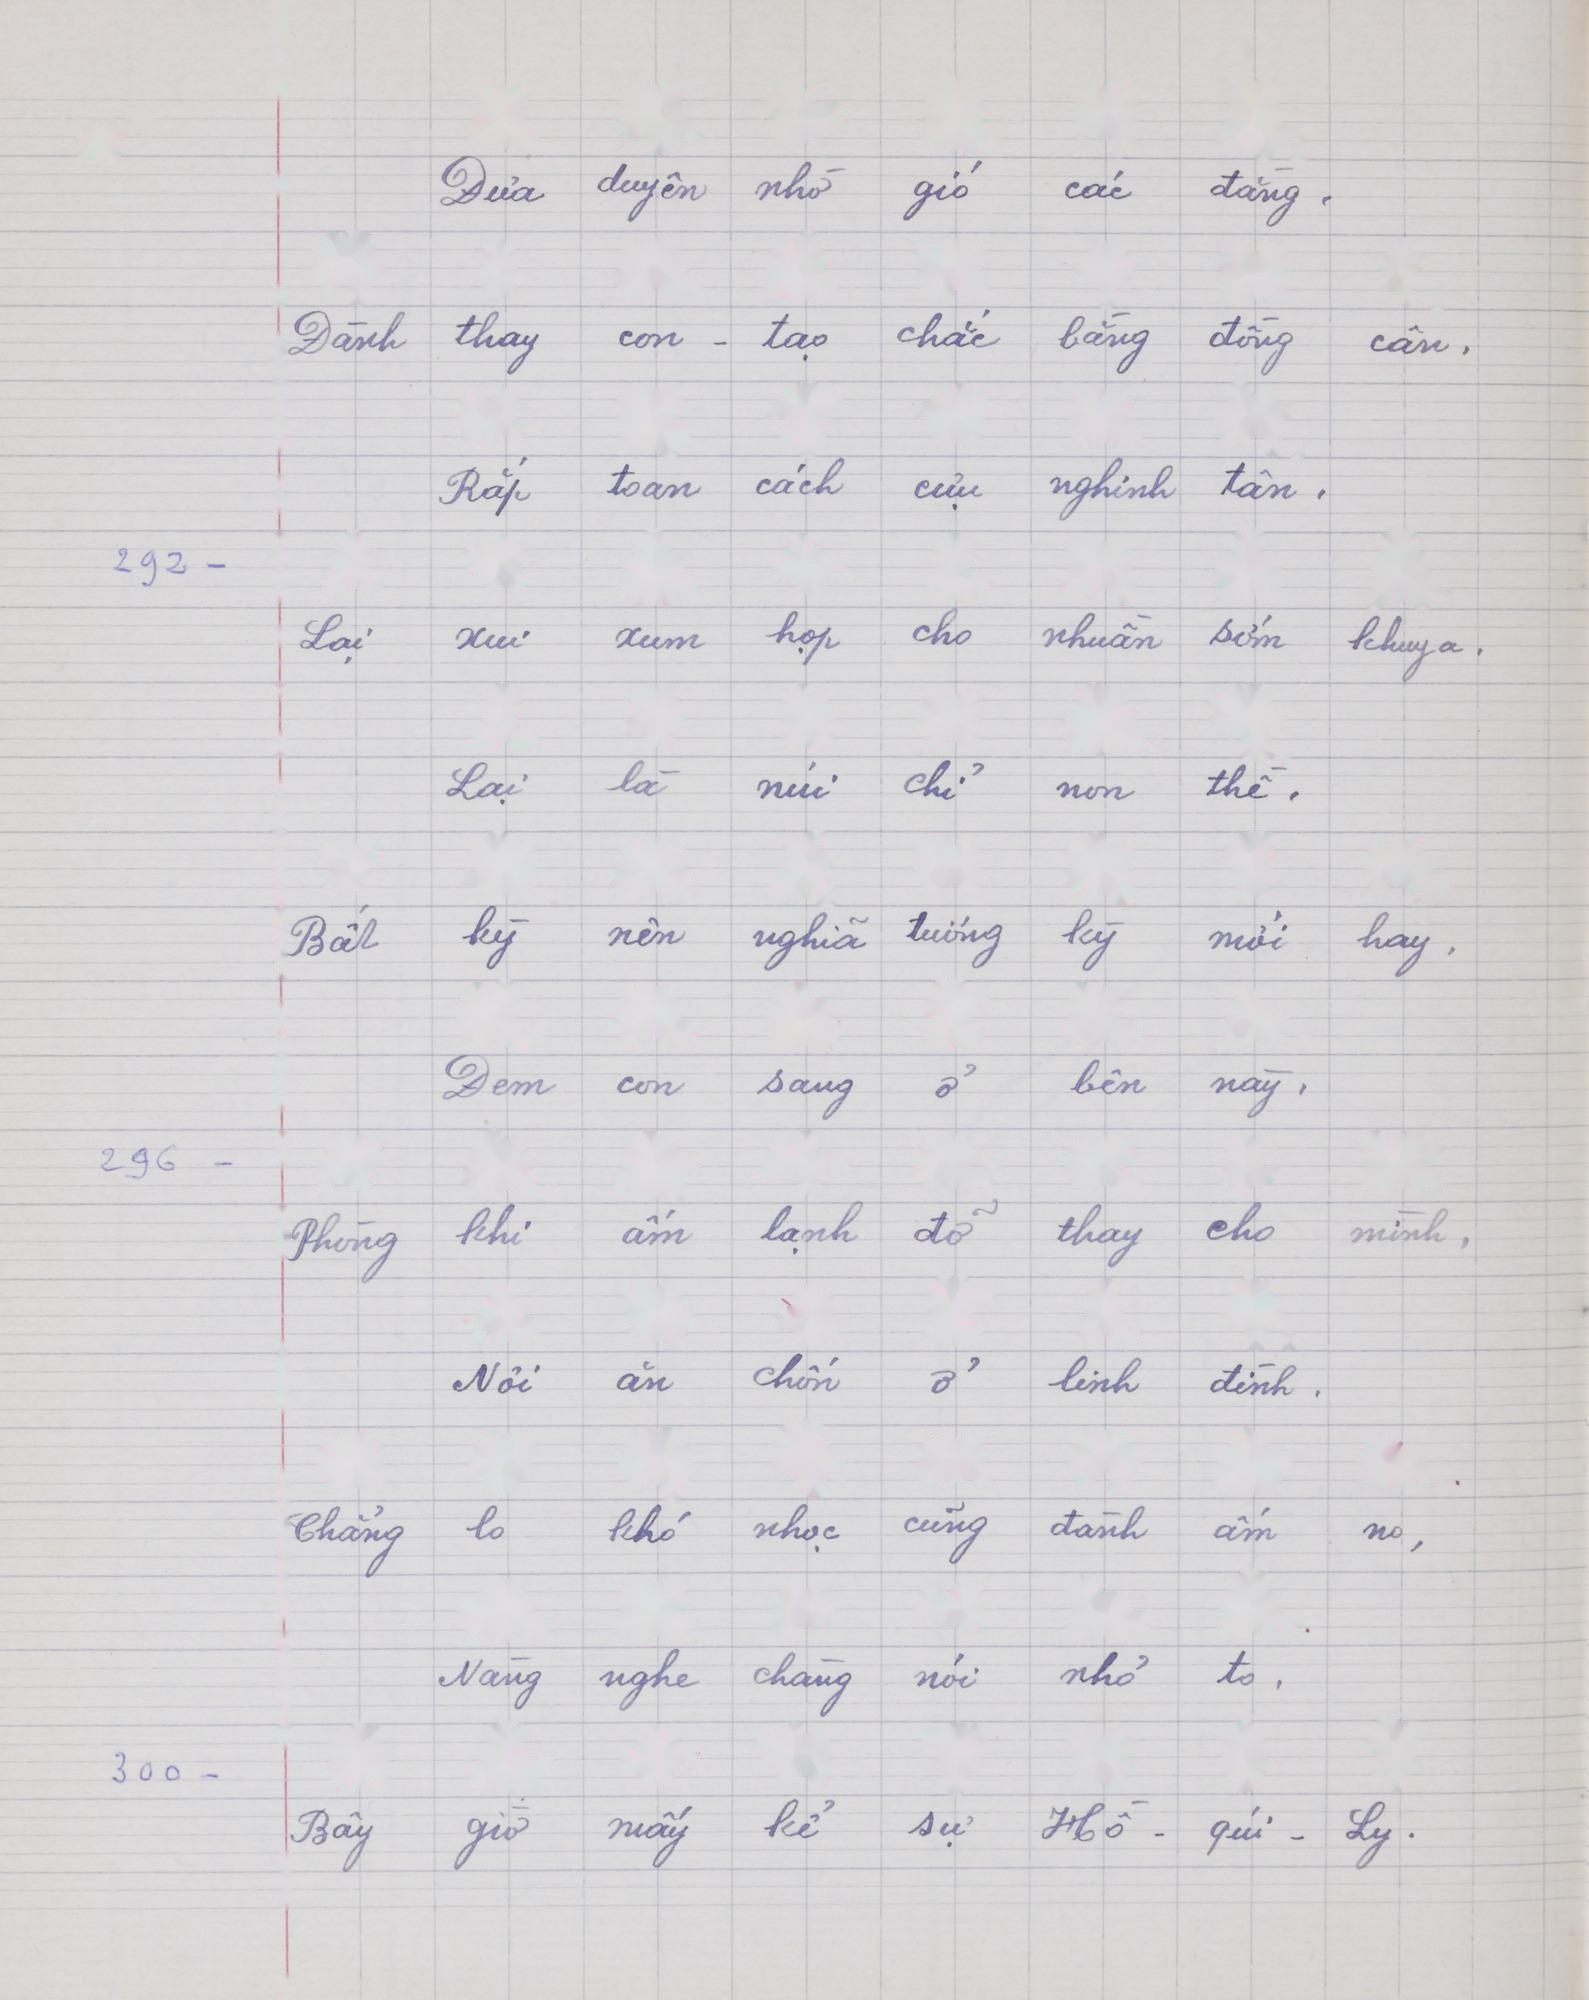 Đưa duyên nhờ gió các đằng.
Đành thay con - tạo chắc bằng đồng cân.
Rắp toan cách cựu nghinh tân.
292 -
Lại xui xum họp cho nhuần sớm khuya.
Lại là núi chỉ non thề.
Bất kỳ nên nghĩa tướng kỳ mới hay.
Đem con sang ở bên này.
296 -
Phòng khi ấm lạnh đỡ thay cho mình,
Nơi ăn chốn ở linh đình.
Chẳng lo khó nhọc cũng đành ấm no,
Nàng nghe chàng nói nhỏ to.
300 -
Bây giờ mấy kể sự Hồ - quí - Ly.